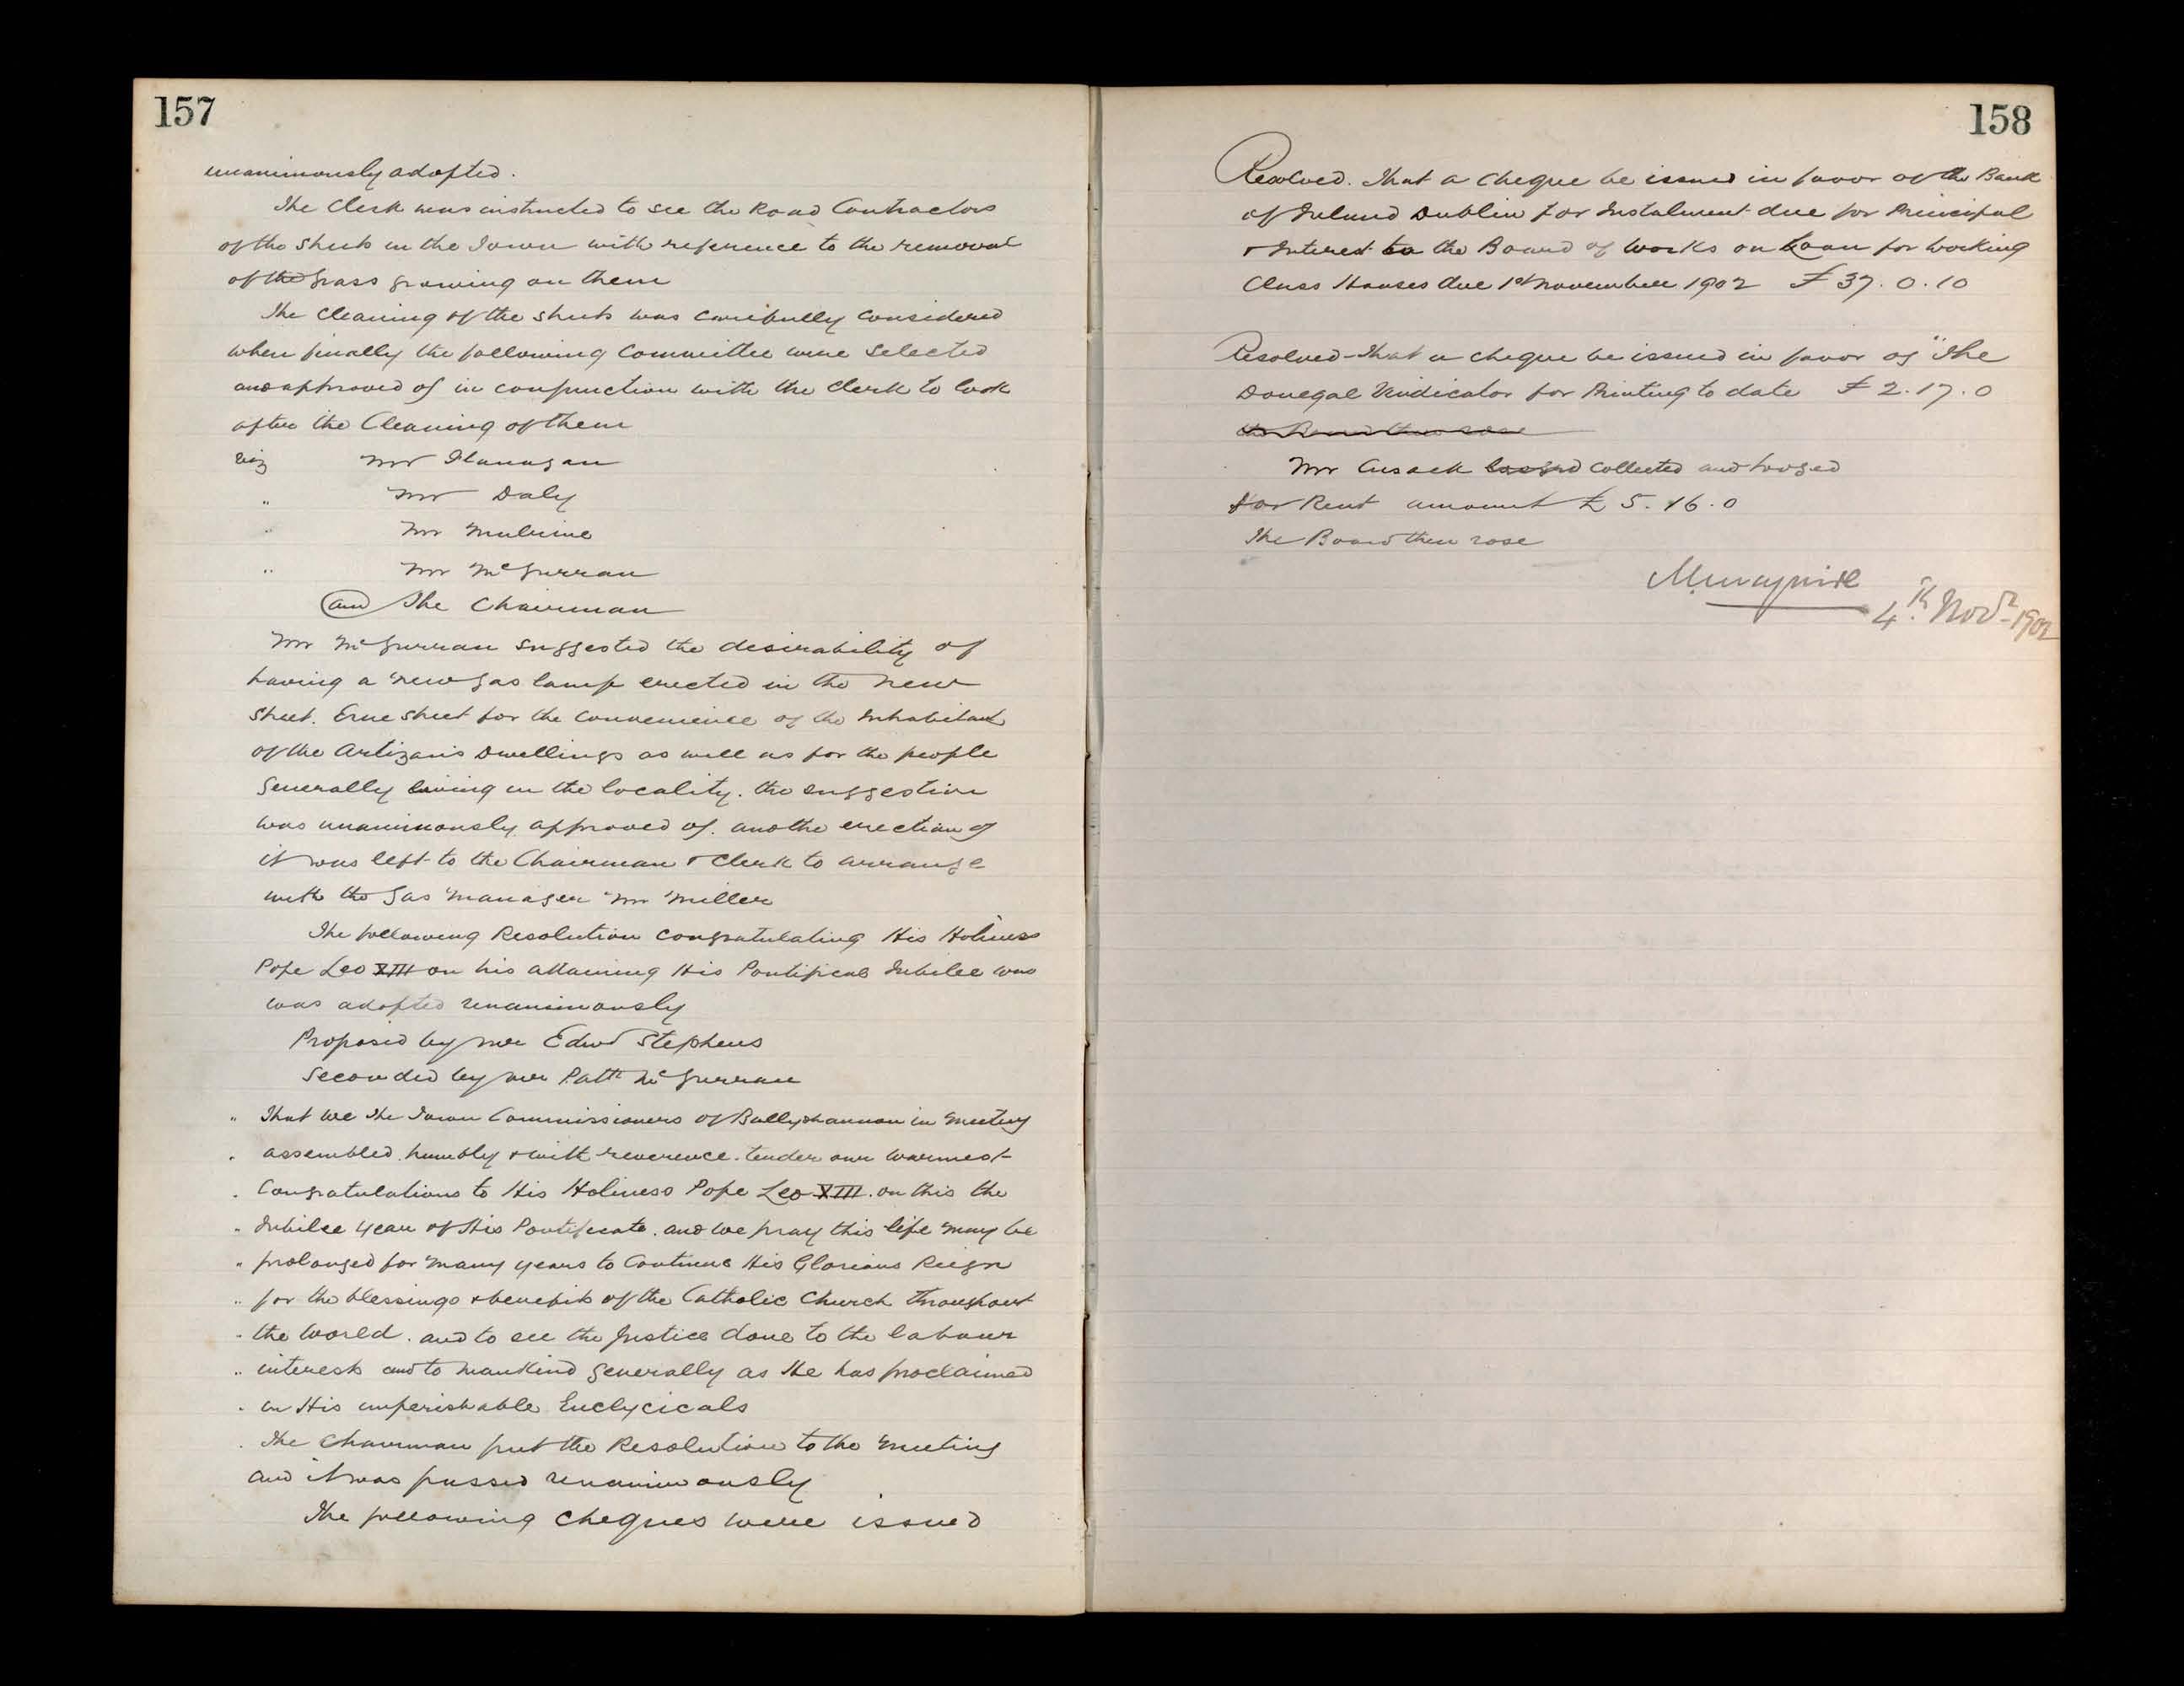 157
unanimously adopted.
The Clerk was instructed to see the Road Contractors
of the Streets in the Town with reference to the removal
of the grass growing on them
The Cleaning of the streets was carefully considered
when finally the following Committee were selected
and approved of in conjunction with the Clerk to look
after the Cleaning of them
viz Mr Flanagan
" Mr Daly
" Mr Mulvine
" Mr McGurran
and The Chairman
Mr McGurran suggested the desirability of
having a new gas lamp erected in the new
Street. Erne Street for the convenience of the Inhabitants
of the Artizans Dwellings as well as for the people
generally living in the locality. the suggestion
was unanimously approved of. and the erection of
it was left to the Chairman & Clerk to arrange
with the Gas Manager Mr Miller
The following Resolution congratulating His Holiness
Pope Leo XIII on his attaining His Pontifical Jubilee was
was adopted unanimously
Proposed by Mr Edwd Stephens
Seconded by Mr Patk McGurran
" That we the Town Commissioners of Ballyshannon in Meeting
" assembled humbly & with reverence. tender our warmest
" Congratulations to His Holiness Pope Leo XIII. on this the
" Jubilee year of His Pontificate. and we pray this life may be
" prolonged for many years to Continue His Glorious Reign
" for the blessings & benefits of the Catholic Church throughout
" the World. and to see the Justice done to the labour
" interests and to mankind generally as He has proclaimed
" in His imperishable Enclycicals
" The Chairman put the Resolution to the Meeting
and it was passed unanimously
The following Cheques were issued
158
Resolved. That a Cheque be issued in favor of the Bank
of Ireland Dublin for Instalment due for Principal
& Interest to the Board of Works on Loan for Working
Class Houses due 1st November 1902 £37.0.10
Resolved - That a cheque be issued in favor of "The
Donegal Vindicator for Printing to date £2.17.0
the Board then rose
Mr Cusack lodged Collected and lodged
for Rent amount £5.16.0
The Board then rose
4th Novr 1902